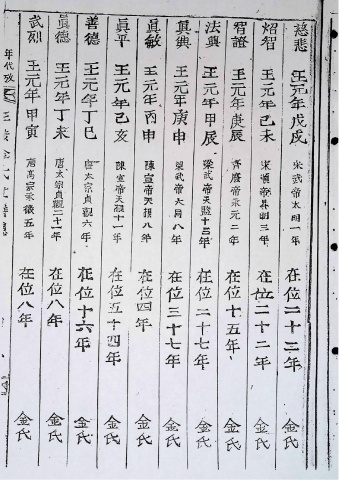 慈悲 王元年戊戌 宋武帝大明一年 在位二十二年 金氏
炤智 王元年己未 宋順帝昇明三年 在位二十二年 金氏
智證 王元年庚辰 齊廢帝永元二年 在位十五年 金氏
法興 王元年甲辰 梁武帝天監十三年 在位二十七年 金氏
真興 王元年庚申 梁武帝大同八年 在位三十七年 金氏
真敏 王元年丙申 陳宣帝天禎八年 在位四年 金氏
真平 王元年己亥 陳宣帝天禎十一年 在位五十四年 金氏
善德 王元年丁巳 唐太宗貞觀六年 在位十六年 金氏
真德 王元年丁未 唐太宗貞觀二十一年 在位八年 金氏
武烈 王元年甲寅 唐高宗永徽五年 在位八年 金氏
年代攷